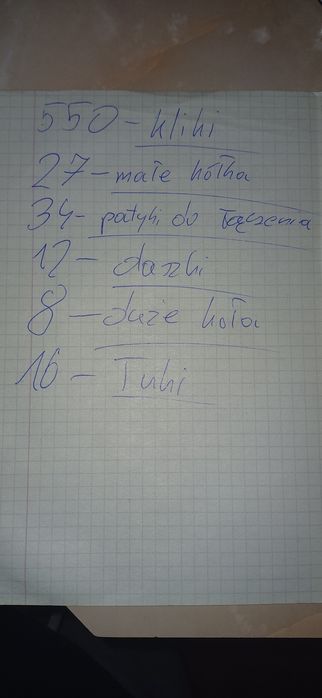 550 - kliki
27 - małe kółka
34 - patyki do łączenia
12 - daszki
8 - duże koła
16 - Łuki